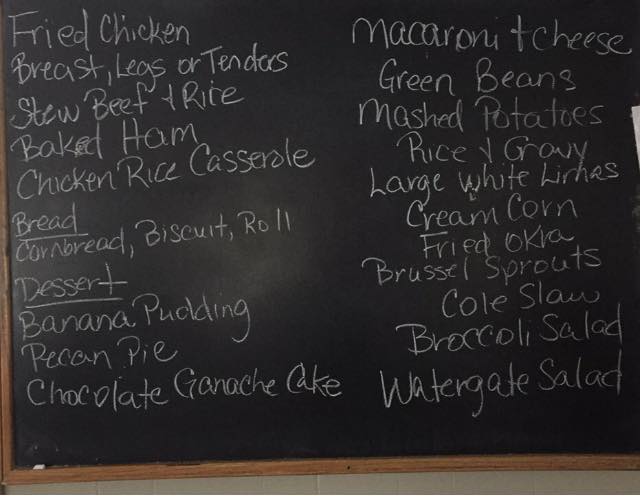 Fried Chicken
Breast, Legs or Tenders
Stew Beef & Rice
Baked Ham
Chicken Rice Casserole
Bread
Cornbread, Biscuit, Roll
Dessert
Banana Pudding
Pecan Pie
Chocolate Ganache Cake
Macaroni + cheese
Green Beans
Mashed Potatoes
Rice & Gravy
Large White Limas
Cream Corn
Fried Okra
Brussel Sprouts
Cole Slaw
Broccoli Salad
Watergate Salad